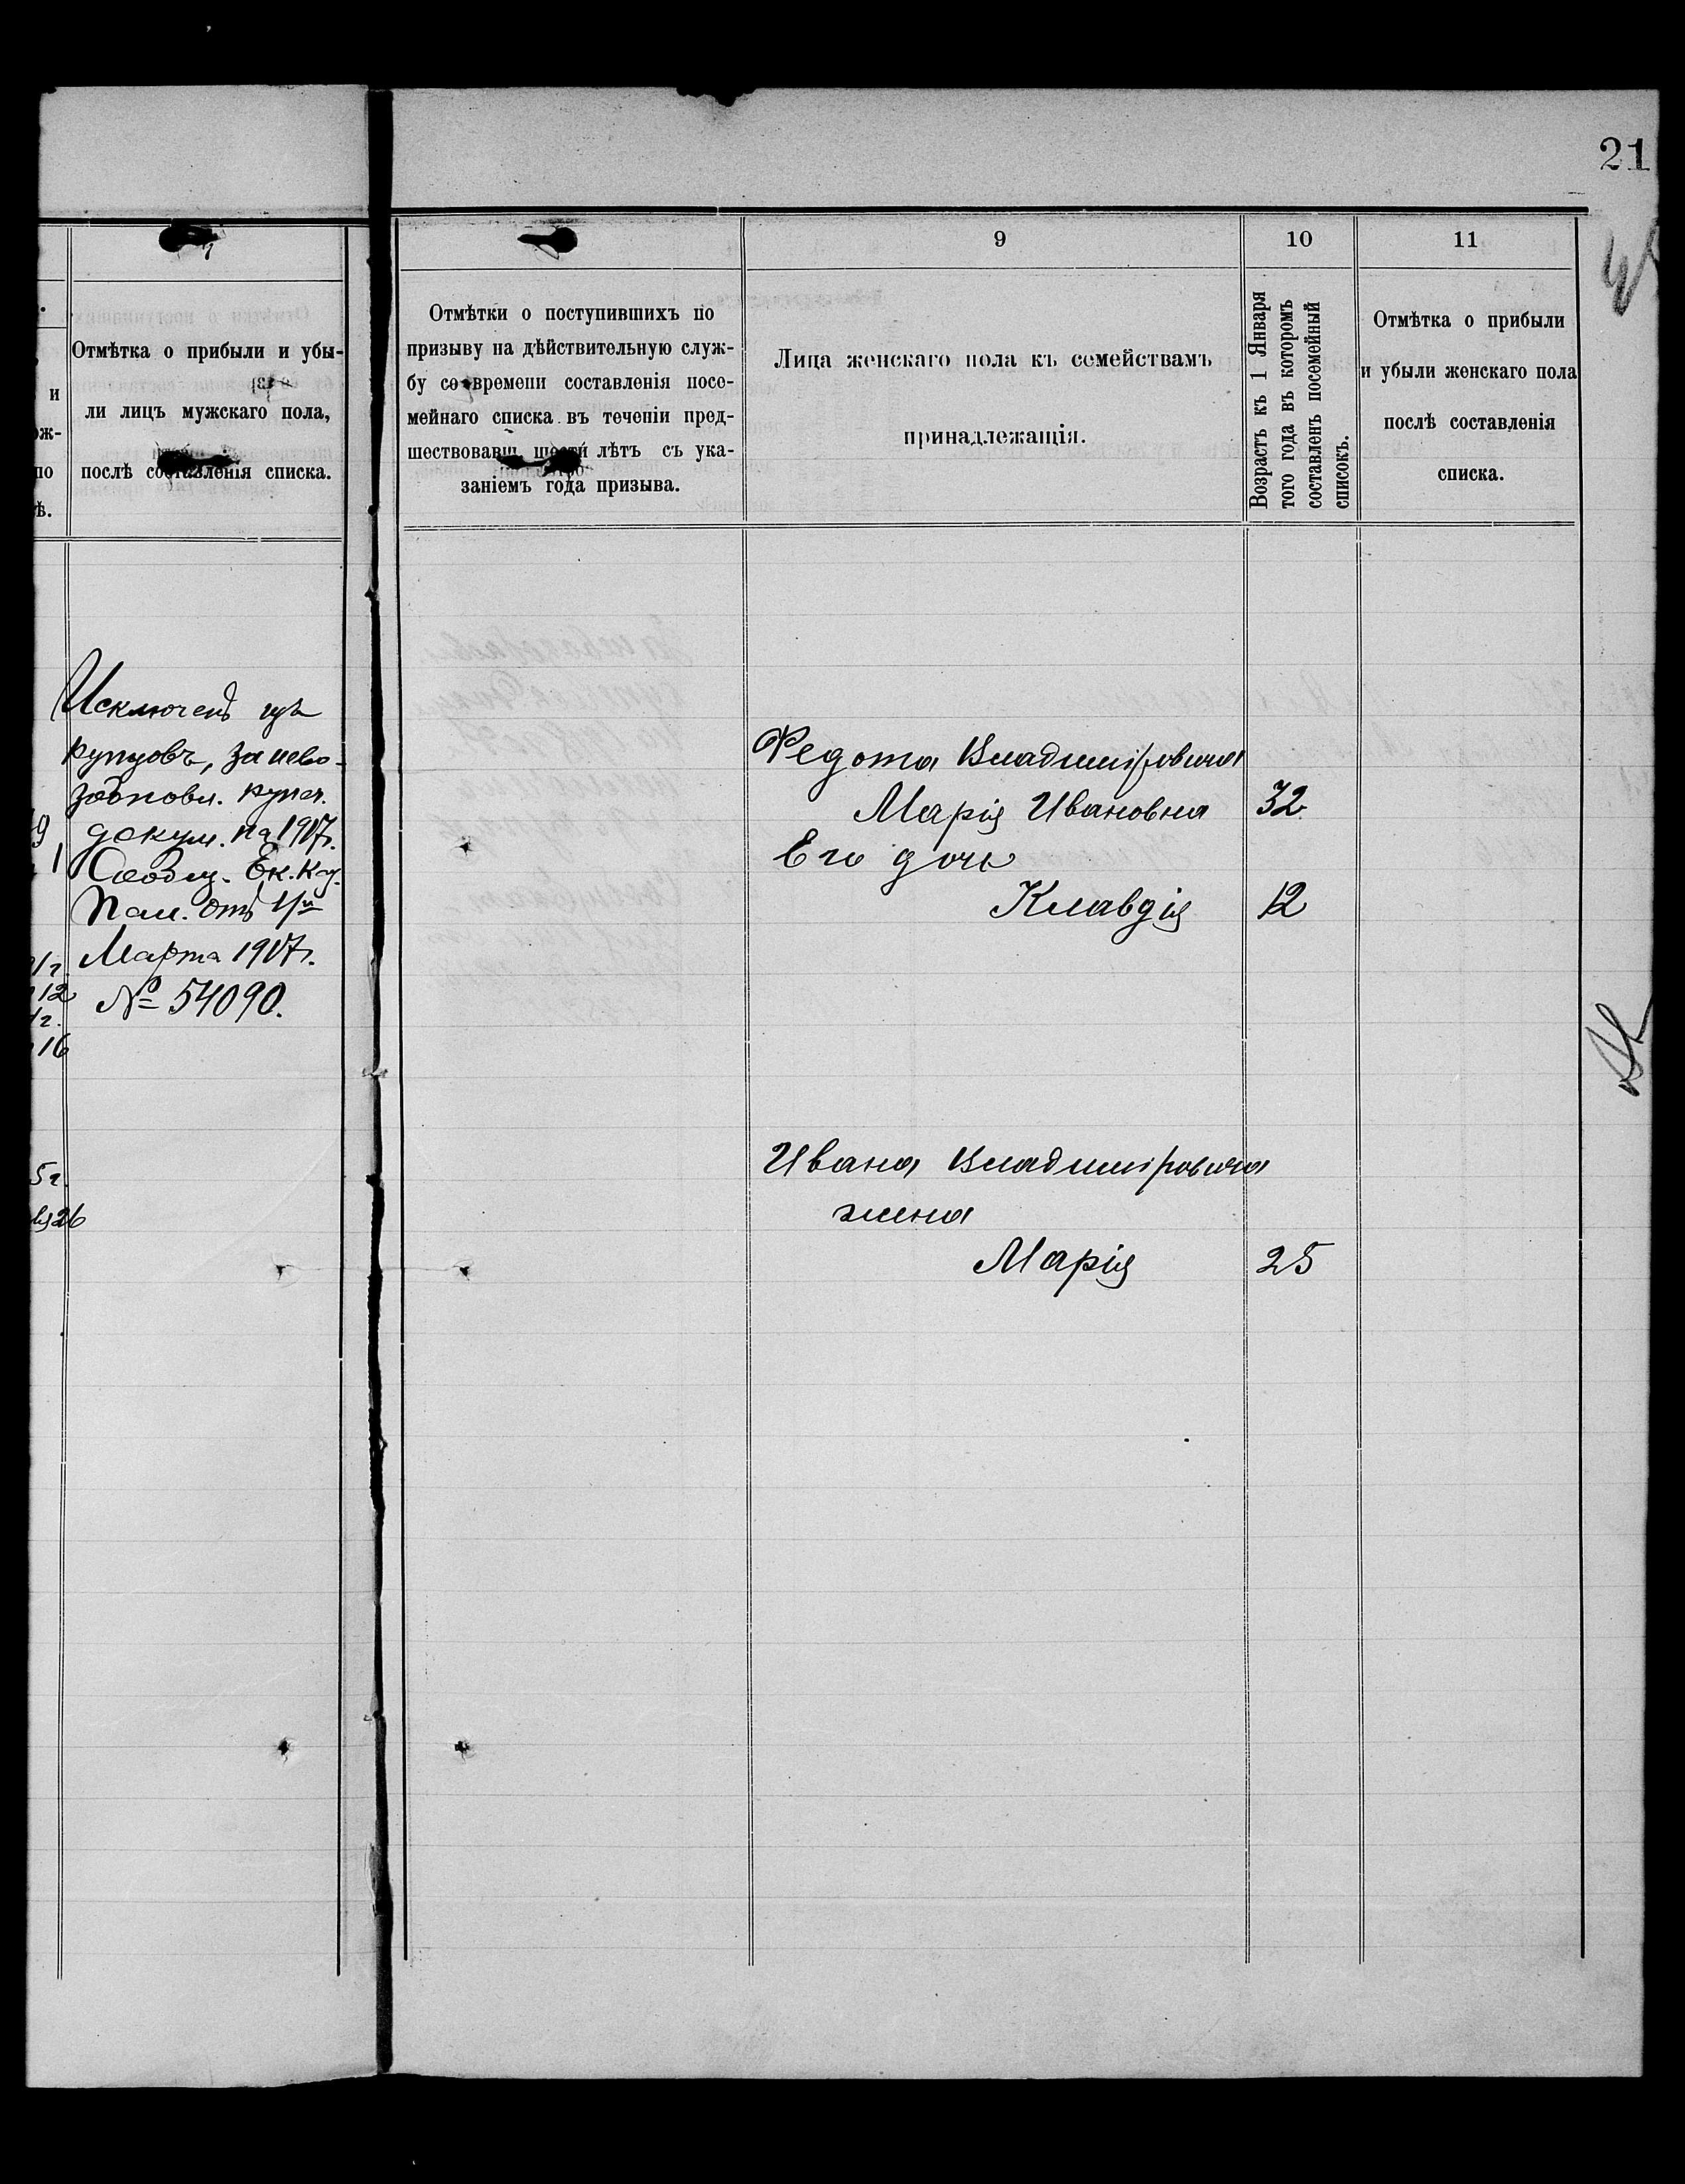 21
7
9
10
11
и
ож-
по
ѣ.
Отмѣтка о прибыли и убы-
ли лицъ мужскаго пола,
послѣ составленія списка.
Отмѣтки о поступившихъ по
призыву на дѣйствительную служ-
бу со времени составленія посе-
мейнаго списка въ теченіи пред-
шествовавш. шести лѣтъ съ ука-
заніемъ года призыва.
Лица женскаго пола къ семействамъ
принадлежащія.
Возрастъ къ 1 Января
того года въ которомъ
составленъ посемейный
списокъ.
Отмѣтка о прибыли
и убыли женскаго пола
послѣ составленія
списка.
Исключенъ изъ
купцовъ, за нево-
зобновл. купеч.
докум. на 1907г.
Сообщ. Ек. Каз.
Пал. отъ
Марта 1907г.
№ 54090.
9
1
1г.
12
1г.
16
5г.
26
Федота Владиміровича
Марія Ивановна 32
Его дочь
Клавдія 12
Ивана Владиміровича
жена
Марія 25